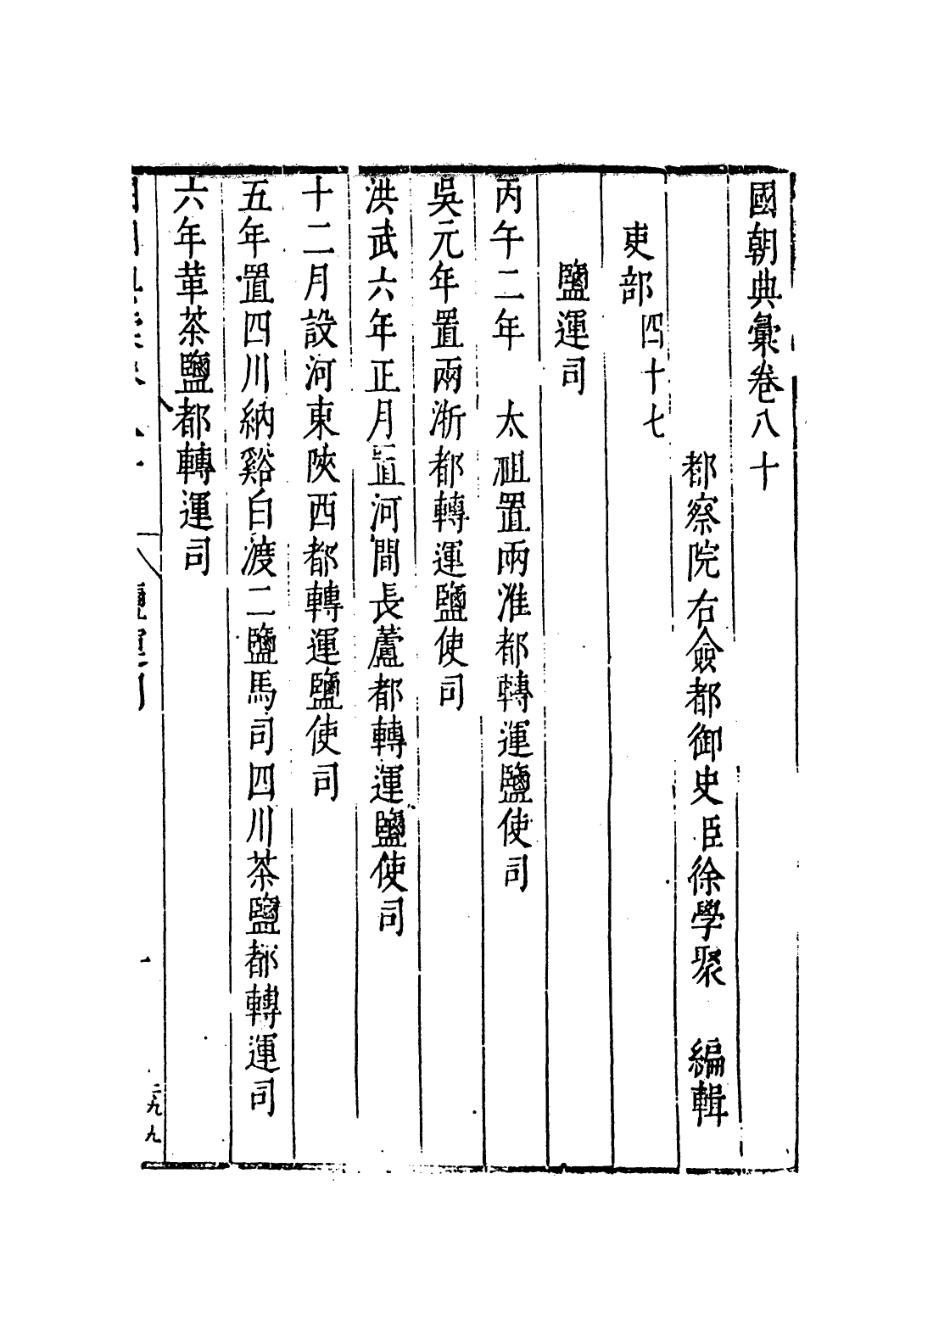 國朝典彙卷八十
都察院右僉都御史臣徐學聚　編輯
吏部四十七
鹽運司
丙午二年　太祖置兩淮都轉運鹽使司
吳元年置兩浙都轉運鹽使司
洪武六年正月置河間長蘆都轉運鹽使司
十二月設河東陝西都轉運鹽使司
五年置四川納谿白渡二鹽馬司四川茶鹽都轉運司
六年革茶鹽都轉運司
一
二九九